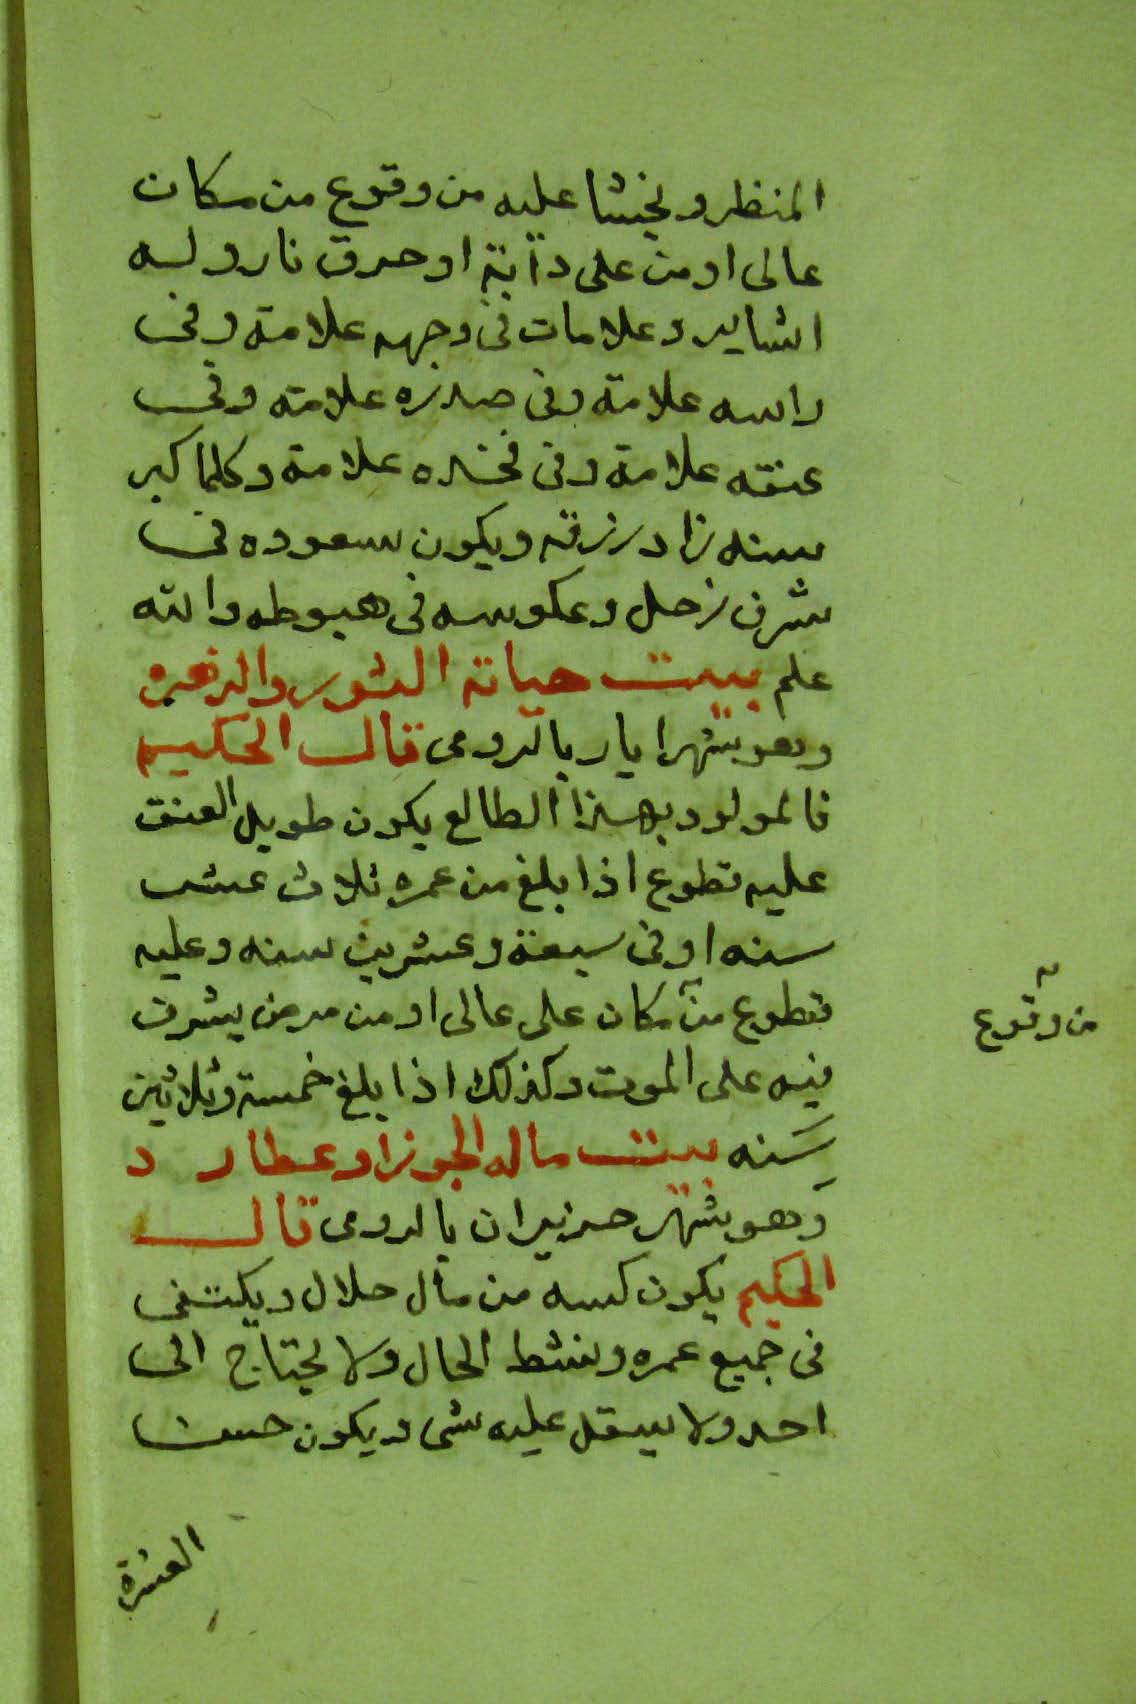 المنظر ويخشا عليه من وقوع من مكان
عالى او من على دآبة او حرق نار وله
اشاير وعلامات فى وجهه علامة وفى
راسه علامة وفى صدره علامة وفى
عنقه علامة وفى فخده علامة وكلما كبر
سنه زاد رزقه ويكون سعوده فى
شرف زحل وعكوسه فى هبوطه والله
علم بيت حياته الثور والزهره
وهو شهر ايار بالرومى قال الحكيم
فالمولود بهذا الطالع يكون طويل العنق
عليه قطوع اذا بلغ من عمره ثلاث عشر
سنه او فى سبعة وعشرين سنه وعليه
قطوع من مكان على عالى او من مرض يشرف
فيه على الموت وكذلك اذا بلغ خمسة وثلاثين
سنه بيت ماله الجوزا وعطارد
وهو شهر حزيران بالرومى قال
الحكيم يكون كسبه من مال حلال ويكتفى
فى جميع عمره وينشط الحال ولا يحتاج الى
احد ولا يبقل عليه شى ويكون حسن
العشرة
من وقوع